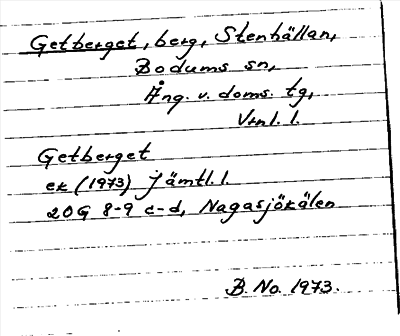 Getberget, berg, Stenhällan,
Bodums sn,
Ång. v. doms. tg,
Vrnl. l.
Getberget
ek (1973) Jämtl. l.
20G 8-9 c-d, Nagasjökälen
B. No. 1973.